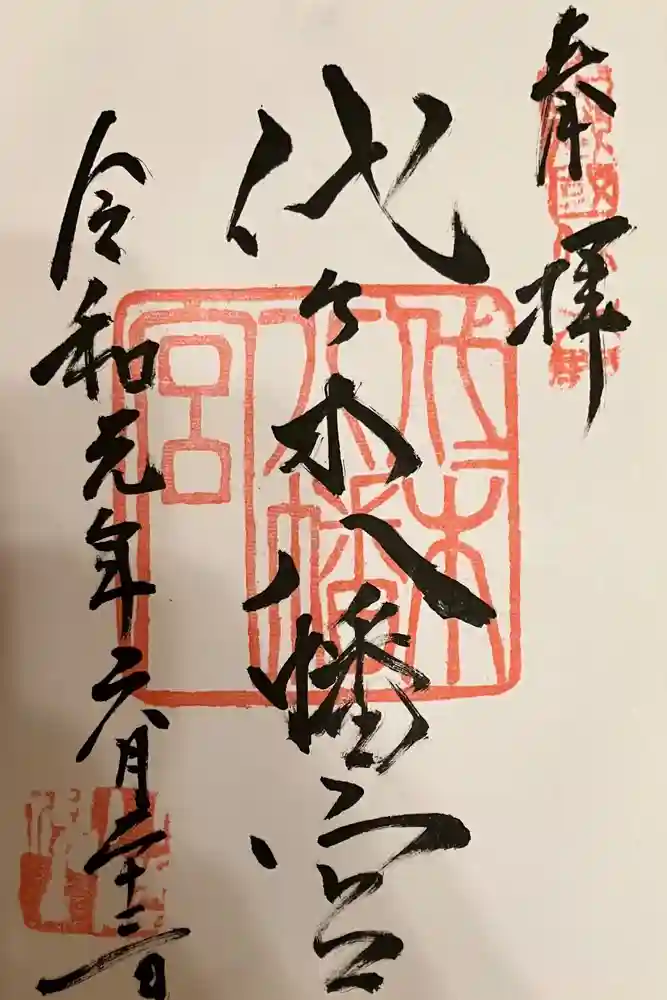 奉拝
代々木八幡宮
令和元年六月二十三日
代々木
八幡
宮